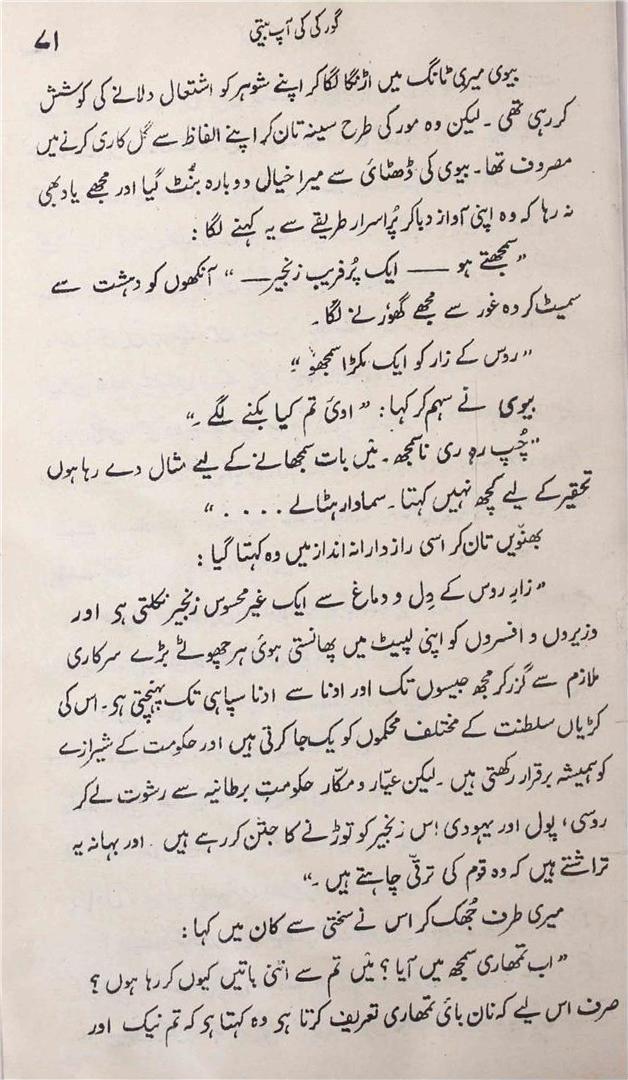 گورکی کی آپ بیتی
۷۱
بیوی میری ٹانگ میں اڑنگا لگا کر اپنے شوہر کو اشتعال دلانے کی کوشش
کر رہی تھی ۔ لیکن وہ مور کی طرح سینہ تان کر اپنے الفاظ سے گل کاری کرنے میں
مصروف تھا۔ بیوی کی ڈھٹائ سے میرا خیال دوبارہ بُنٹ گیا اور مجھے یاد بھی
نہ رہا کہ وہ اپنی آواز دبا کر پُراسرار طریقے سے یہ کہنے لگا :
”سمجھتے ہو —— ایک پُرفریب زنجیر—— “ آنکھوں کو دہشت سے
سمیٹ کر وہ غور سے مجھے گھورنے لگا۔
”روس کے زار کو ایک مکڑا سمجھو “
بیوی نے سہم کر کہا : ”اوئ تم کیا بکنے لگے ۔“
”چُپ رہ ری ناسمجھ ۔ میں بات سمجھانے کے لیے مثال دے رہا ہوں
تحقیر کے لیے کچھ نہیں کہتا ۔ سماوار ہٹالے . . . . “
بھنویں تان کر اسی رازدارانہ انداز میں وہ کہتا گیا :
”زارِ روس کے دِل و دماغ سے ایک غیر محسوس زنجیر نکلتی ہی اور
وزیروں و افسروں کو اپنی لپیٹ میں پھانستی ہوئ ہر چھوٹے بڑے سرکاری
ملازم سے گزر کر مجھ جیسوں تک اور ادنا سے ادنا سپاہی تک پہنچتی ہی۔ اس کی
کڑیاں سلطنت کے مختلف محکموں کو یک جا کرتی ہیں اور حکومت کے شیرازے
کو ہمیشہ برقرار رکھتی ہیں ۔ لیکن عیّار و مکّار حکومتِ برطانیہ سے رشوت لے کر
روسی ، پول اور یہودی اِس زنجیر کو توڑنے کا جتن کر رہے ہیں ۔ اور بہانہ یہ
تراشتے ہیں کہ وہ قوم کی ترقّی چاہتے ہیں ۔“
میری طرف جُھک کر اس نے سختی سے کان میں کہا :
”اب تمھاری سمجھ میں آیا ؟ میں تم سے اتنی باتیں کیوں کر رہا ہوں ؟
صرف اس لیے کہ نان بائ تمھاری تعریف کرتا ہی وہ کہتا ہی کہ تم نیک اور